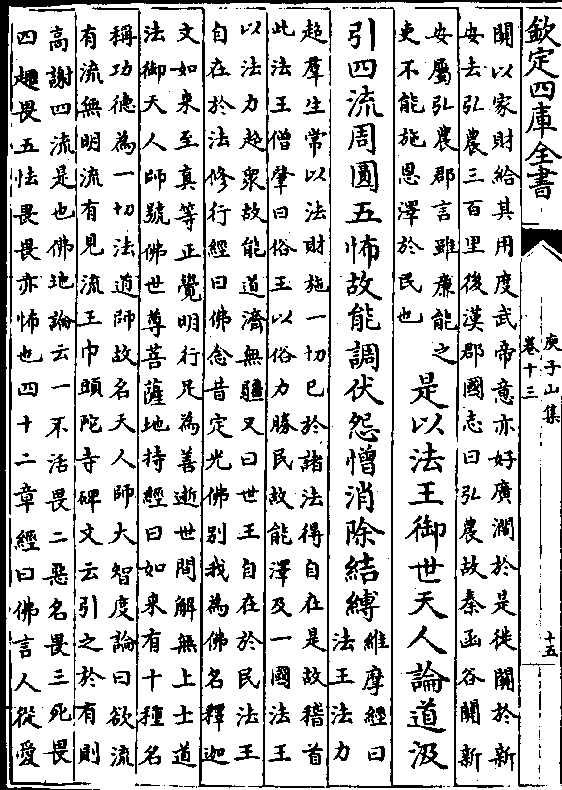 欽定四庫全書
庚子山集
卷十三
十五
關以家財給其用度武帝意亦好廣濶於是徙關於新
安去弘農三百里後漢郡國志曰弘農故秦函谷關新
安屬弘農郡言雖廉能之
吏不能施恩澤於民也
是以法王御世天人論道汲
引四流周圓五怖故能調伏怨憎消除結縛
維摩經曰
法王法力
超羣生常以法財施一切已於諸法得自在是故稽首
此法王僧肇曰俗王以俗力勝民故能澤及一國法王
以法力超衆故能道濟無疆又曰世王自在於民法王
自在於法修行經曰佛念昔定光佛別我為佛名釋迦
文如來至真等正覺明行足為善逝世間解無上士道
法御天人師號佛世尊菩薩地持經曰如來有十種名
稱功德為一切法道師故名天人師大智度論曰欲流
有流無明流有見流王巾頭陀寺碑文云引之於有則
高謝四流是也佛地論云一不活畏二惡名畏三死畏
四趣畏五怯畏畏亦怖也四十二章經曰佛言人從愛